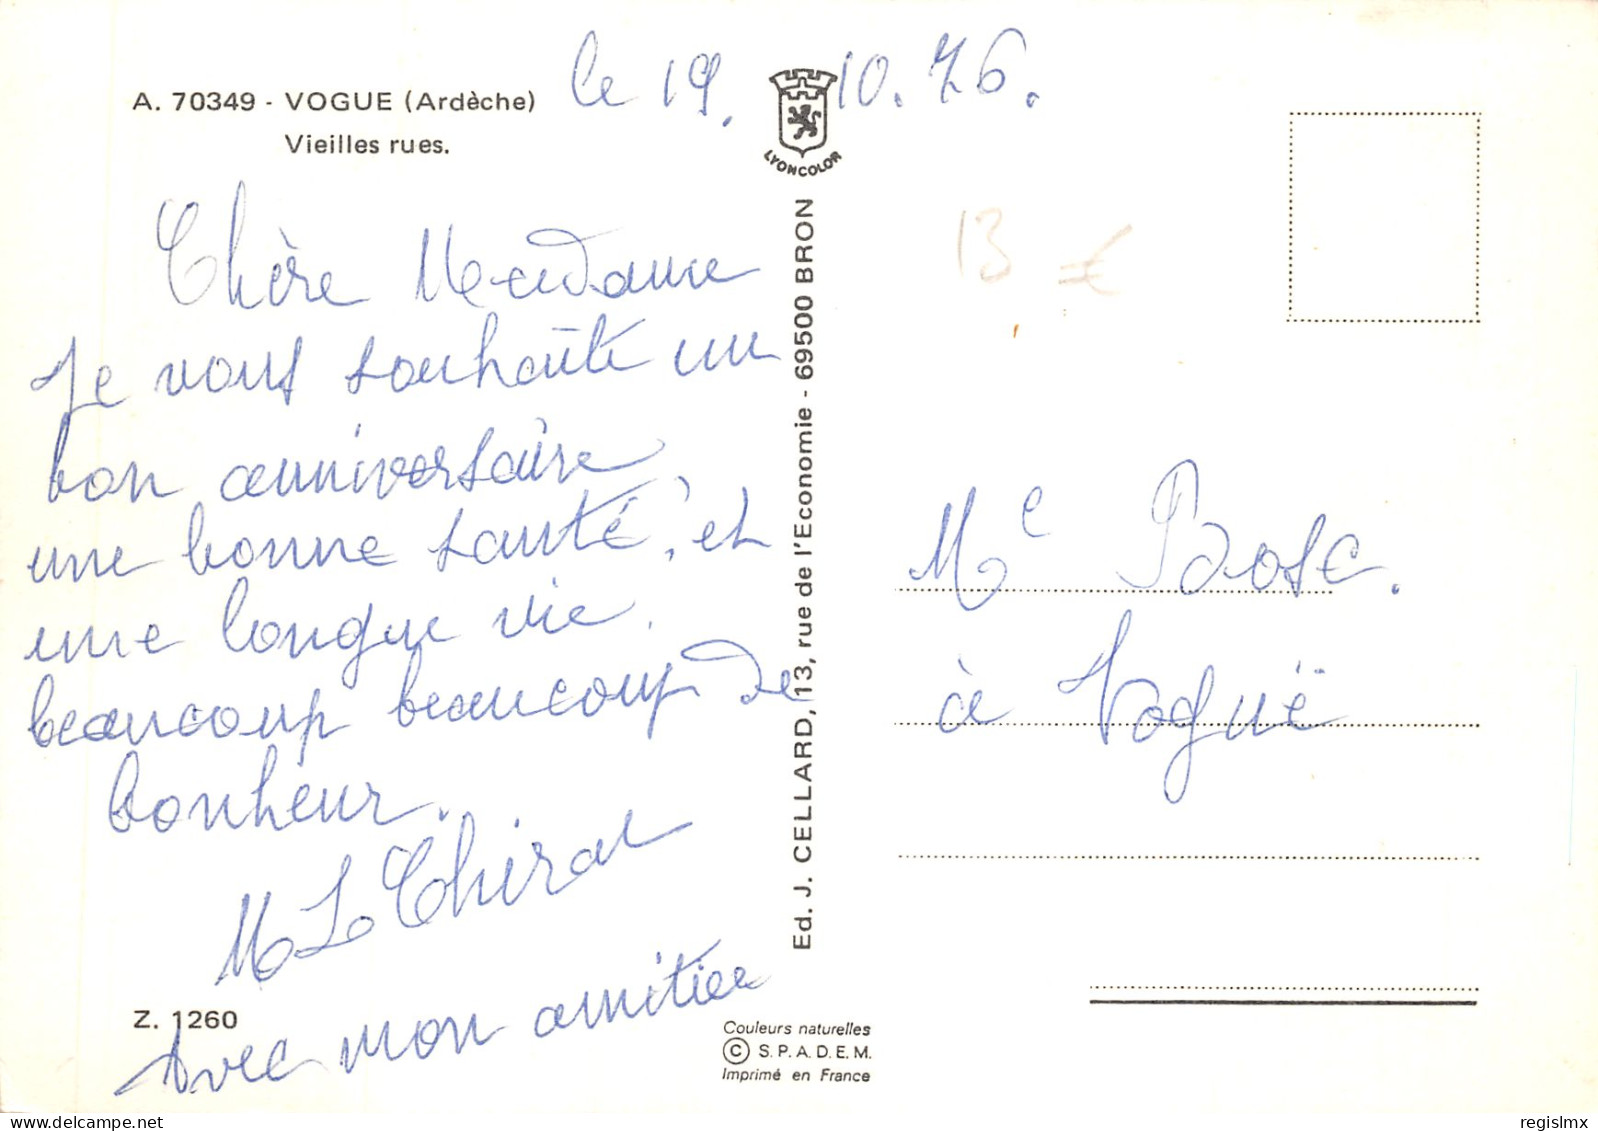 le 19. 10. 76.
A. 70349 - VOGUE (Ardèche)
Vieilles rues.
LYONCOLOR
Chère Madame
Je vous souhaite un
bon anniversaire
une bonne santé, et
une longue vie.
beaucoup beaucoup de
bonheur.
M L Chirat
Avec mon amitiée
Z. 1260
Ed. J. CELLARD, 13, rue de l'Economie - 69500 BRON
Couleurs naturelles
© S.P.A.D.E.M.
Imprimé en France
13 €
Me Bosc.
à Voguë
regislmx